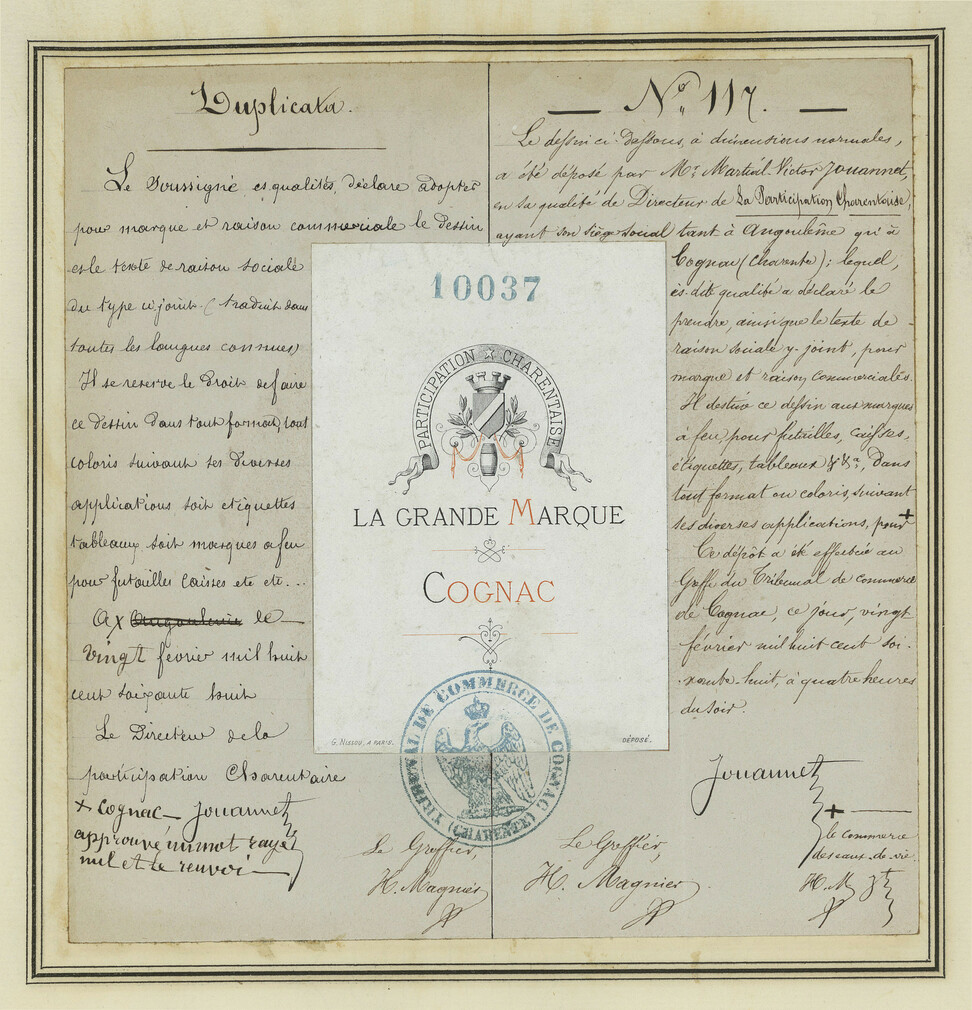 Duplicata.
Le Soussigné es qualités, déclare adopter
pour marque et raison commerciale le dessin
et le texte de raison sociale
du type ci joint. (traduit dans
toutes les langues connues)
Il se reserve le Droit de faire
ce Dessin Dans tout format, tout
coloris suivant ses Diverses
applications soit etiquettes
tableaux soit marques a feu
pour futailles Caisses etc etc...
A x Angoulême le
Vingt fevrier mil huit
cent soixante huit
Le Directeur de la
participation Charentaise
+ Cognac Jouannet
approuvé un mot rayé
nul et le renvoi
Le Greffier,
H. Magnier
No. 117.
Le dessin ci-dessous, à dimensions normales,
a été déposé par Mr. Martial Victor Jouannet,
en sa qualité de Directeur de La Participation Charentaise,
ayant son siége social tant à Angoulême qu'à
Cognac (Charente); lequel,
ès-dite qualité a déclaré le
prendre, ainsi que le texte de
raison sociale y-joint, pour
marque et raison commerciales.
Il destine ce dessin aux marques
à feu, pour futailles, caisses,
étiquettes, tableaux &&a, Dans
tout format ou coloris, suivant
ses diverses applications, pour +
Ce dépôt a été effectué au
Greffe du Tribunal de commerce
de Cognac, ce jour, vingt
février mil huit cent soi-
xante-huit, à quatre heures
du soir.
Jouannet
+
le commerce
des eaux-de-vie.
H. M
Le Greffier,
H. Magnier
10037
PARTICIPATION CHARENTAISE
LA GRANDE MARQUE
COGNAC
G. NISSOU, A PARIS.
DÉPOSÉ.
TRIBUNAL DE COMMERCE DE COGNAC
(CHARENTE)